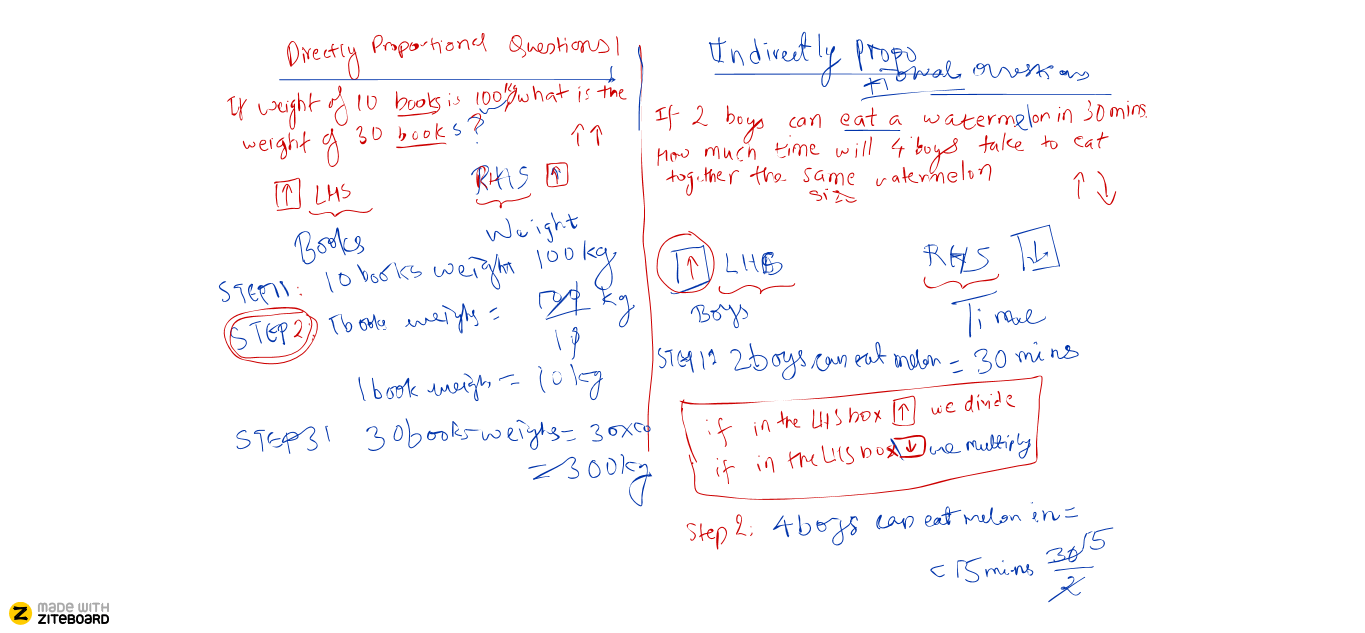 Directly Proportional Questions
If weight of 10 books is 100kg what is the
weight of 30 books?
↑↑
↑ LHS RHS ↑
Books Weight
STEP1: 10 books weight 100 kg
STEP2: 1 book weighs = 100/10 kg
1 book weighs = 10 kg
STEP3: 30 books weighs = 30x10
= 300kg
Indirectly Propo
tional Questions
If 2 boys can eat a watermelon in 30 mins.
How much time will 4 boys take to eat
together the same watermelon
size
↑↓
↑ LHS RHS ↓
Boys Time
STEP1: 2 boys can eat melon = 30 mins
if in the LHS box ↑ we divide
if in the LHS box ↓ we multiply
Step 2: 4 boys can eat melon in =
= 15 mins 30/2 15
MADE WITH
ZITEBOARD